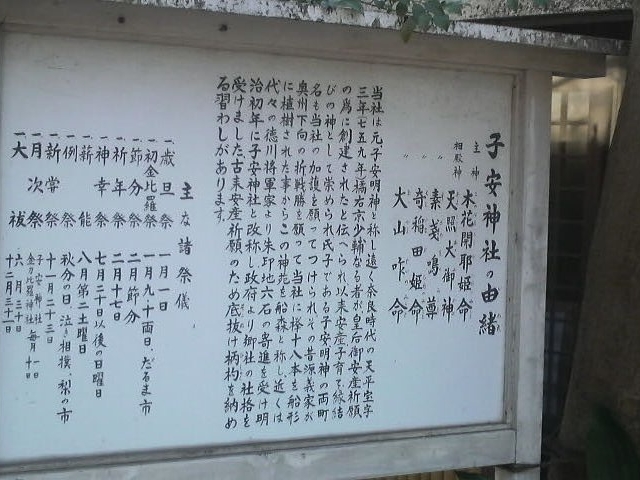 子安神社の由緒
主神 木花開耶姫命
相殿神 天照大御神
〃 素戔鳴尊
〃 奇稲田姫命
〃 大山咋命
当社は元子安明神と称し遠く奈良時代の天平宝字
三年七五九年橘右京少輔なる者が皇后御安産祈願
の為に創建されたと伝へられ以来安産子育て縁結
びの神として崇められ氏子である子安明神の両町
名も当社の加護を願ってつけられその昔源義家が
奥州下向の折戦勝を願って当社に欅十八本を船形
に植樹された事からこの神苑を船森と称し近くは
代々の徳川将軍家より朱印地六石の寄進を受け明
治初年に子安神社と改称し政府より郷社の社格を
受けました古来安産祈願のため底抜け柄杓を納め
る習わしがあります
主な諸祭儀
一、歳旦祭 一月一日
一、初金比羅祭 一月九、十両日、だるま市
一、節分祭 二月節分
一、祈年祭 二月十七日
一、神幸祭 七月二十日以後の日曜日
一、薪能 八月第二土曜日
一、例祭 秋分の日 泣き相撲、梨の市
一、新嘗祭 十一月二十三日
一、月次祭 子安神社 毎月一日 金刀比羅神社 毎月十日
一、大祓 六月三十日 十二月三十一日